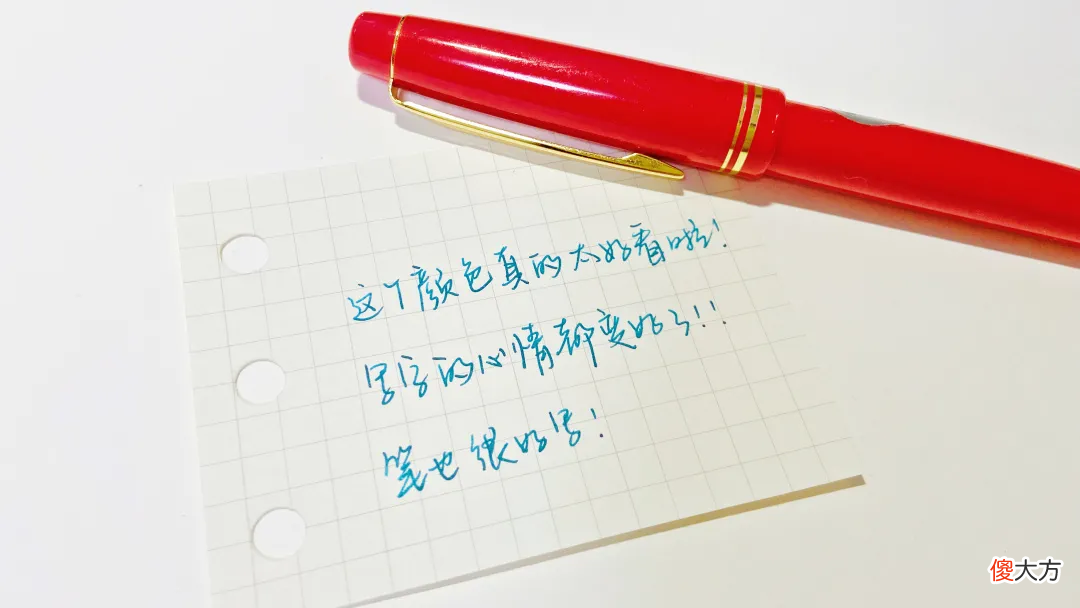 这个颜色真的太好看啦!
写字的心情都变好了!!
笔也很好写!
傻大方